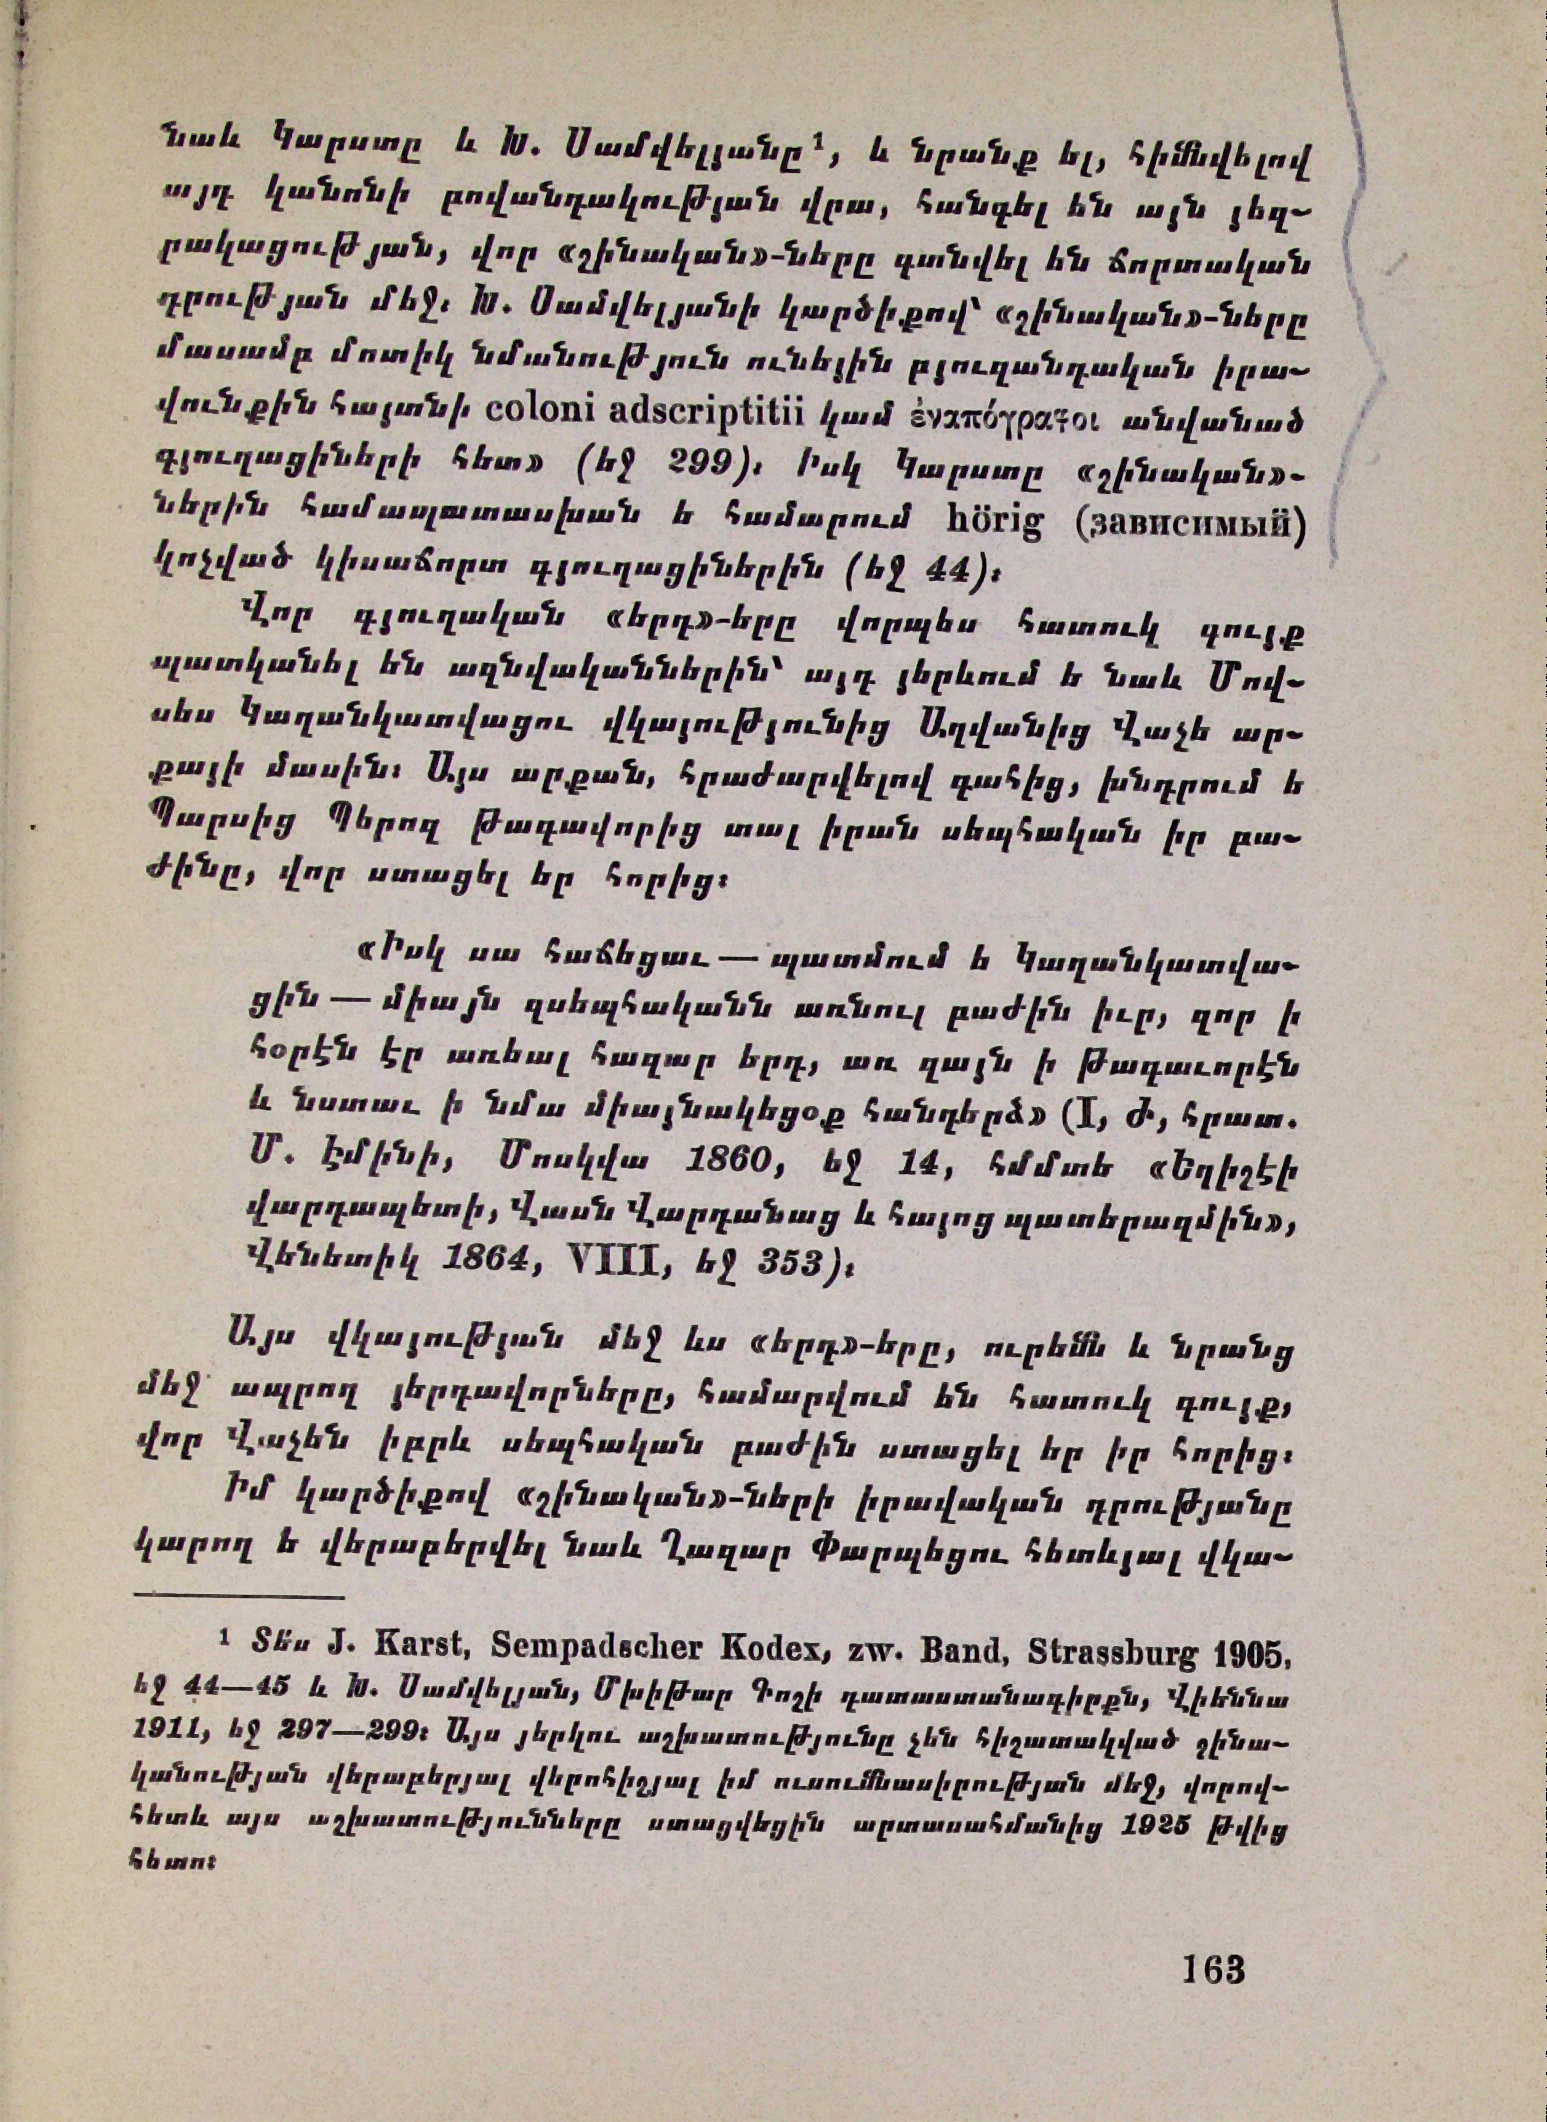 նաև Կարստը և Խ. Սամվելյանը¹, և նրանք ել, հիմնվելով
այդ կանոնի բովանդակության վրա, հանգել են այն յեզ-
րակացության, վոր «շինական»-ները գտնվել են ճորտական
դրության մեջ։ Խ. Սամվելյանի կարծիքով՝ «շինական»-ները
մասամբ մոտիկ նմանություն ունեյին բյուզանդական իրա-
վունքին հայտնի coloni adscriptitii կամ ἐναπόγραφοι անվանած
գյուղացիների հետ» (եջ 299)։ Իսկ Կարստը «շինական»-
ներին համապատասխան ե համարում hörig (зависимый)
կոչված կիսաճորտ գյուղացիներին (եջ 44)։
Վոր գյուղական «երդ»-երը վորպես հատուկ գույք
պատկանել են ազնվականներին՝ այդ յերևում ե նաև Մով-
սես Կաղանկատվացու վկայությունից Աղվանից Վաչե ար-
քայի մասին։ Այս արքան, հրաժարվելով գահից, խնդրում ե
Պարսից Պերոզ թագավորից տալ իրան սեպհական իր բա-
ժինը, վոր ստացել եր հորից։
«Իսկ սա հաճեցաւ — պատմում ե Կաղանկատվա-
ցին — միայն զսեպհականն առնուլ բաժին իւր, զոր ի
հօրէն էր առեալ հազար երդ, առ զայն ի թագաւորէն
և նստաւ ի նմա միայնակեցօք հանդերձ» (I, Ժ, հրատ.
Մ. Էմինի, Մոսկվա 1860, եջ 14, հմմտե «Եղիշէի
վարդապետի, Վասն Վարդանաց և հայոց պատերազմին»,
Վենետիկ 1864, VIII, եջ 353)։
Այս վկայության մեջ ևս «երդ»-երը, ուրեմն և նրանց
մեջ ապրող յերդավորները, համարվում են հատուկ գույք,
վոր Վաչեն իբրև սեպհական բաժին ստացել եր իր հորից։
Իմ կարծիքով «շինական»-ների իրավական դրությանը
կարող ե վերաբերվել նաև Ղազար Փարպեցու հետևյալ վկա-
¹ Տե՛ս J. Karst, Sempadscher Kodex, zw. Band, Strassburg 1905,
եջ 44—45 և Խ. Սամվելյան, Մխիթար Գոշի դատաստանագիրքն, Վիեննա
1911, եջ 297—299։ Այս յերկու աշխատությունը չեն հիշատակված շինա-
կանության վերաբերյալ վերոհիշյալ իմ ուսումնասիրության մեջ, վորով-
հետև այս աշխատությունները ստացվեցին արտասահմանից 1925 թվից
հետո։
163